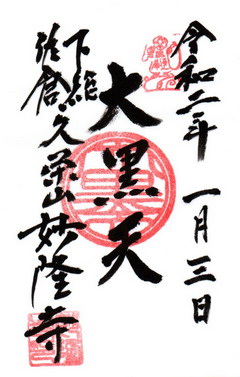 令和二年 一月三日
大黒天
下総
弥富
久栄山妙隆寺